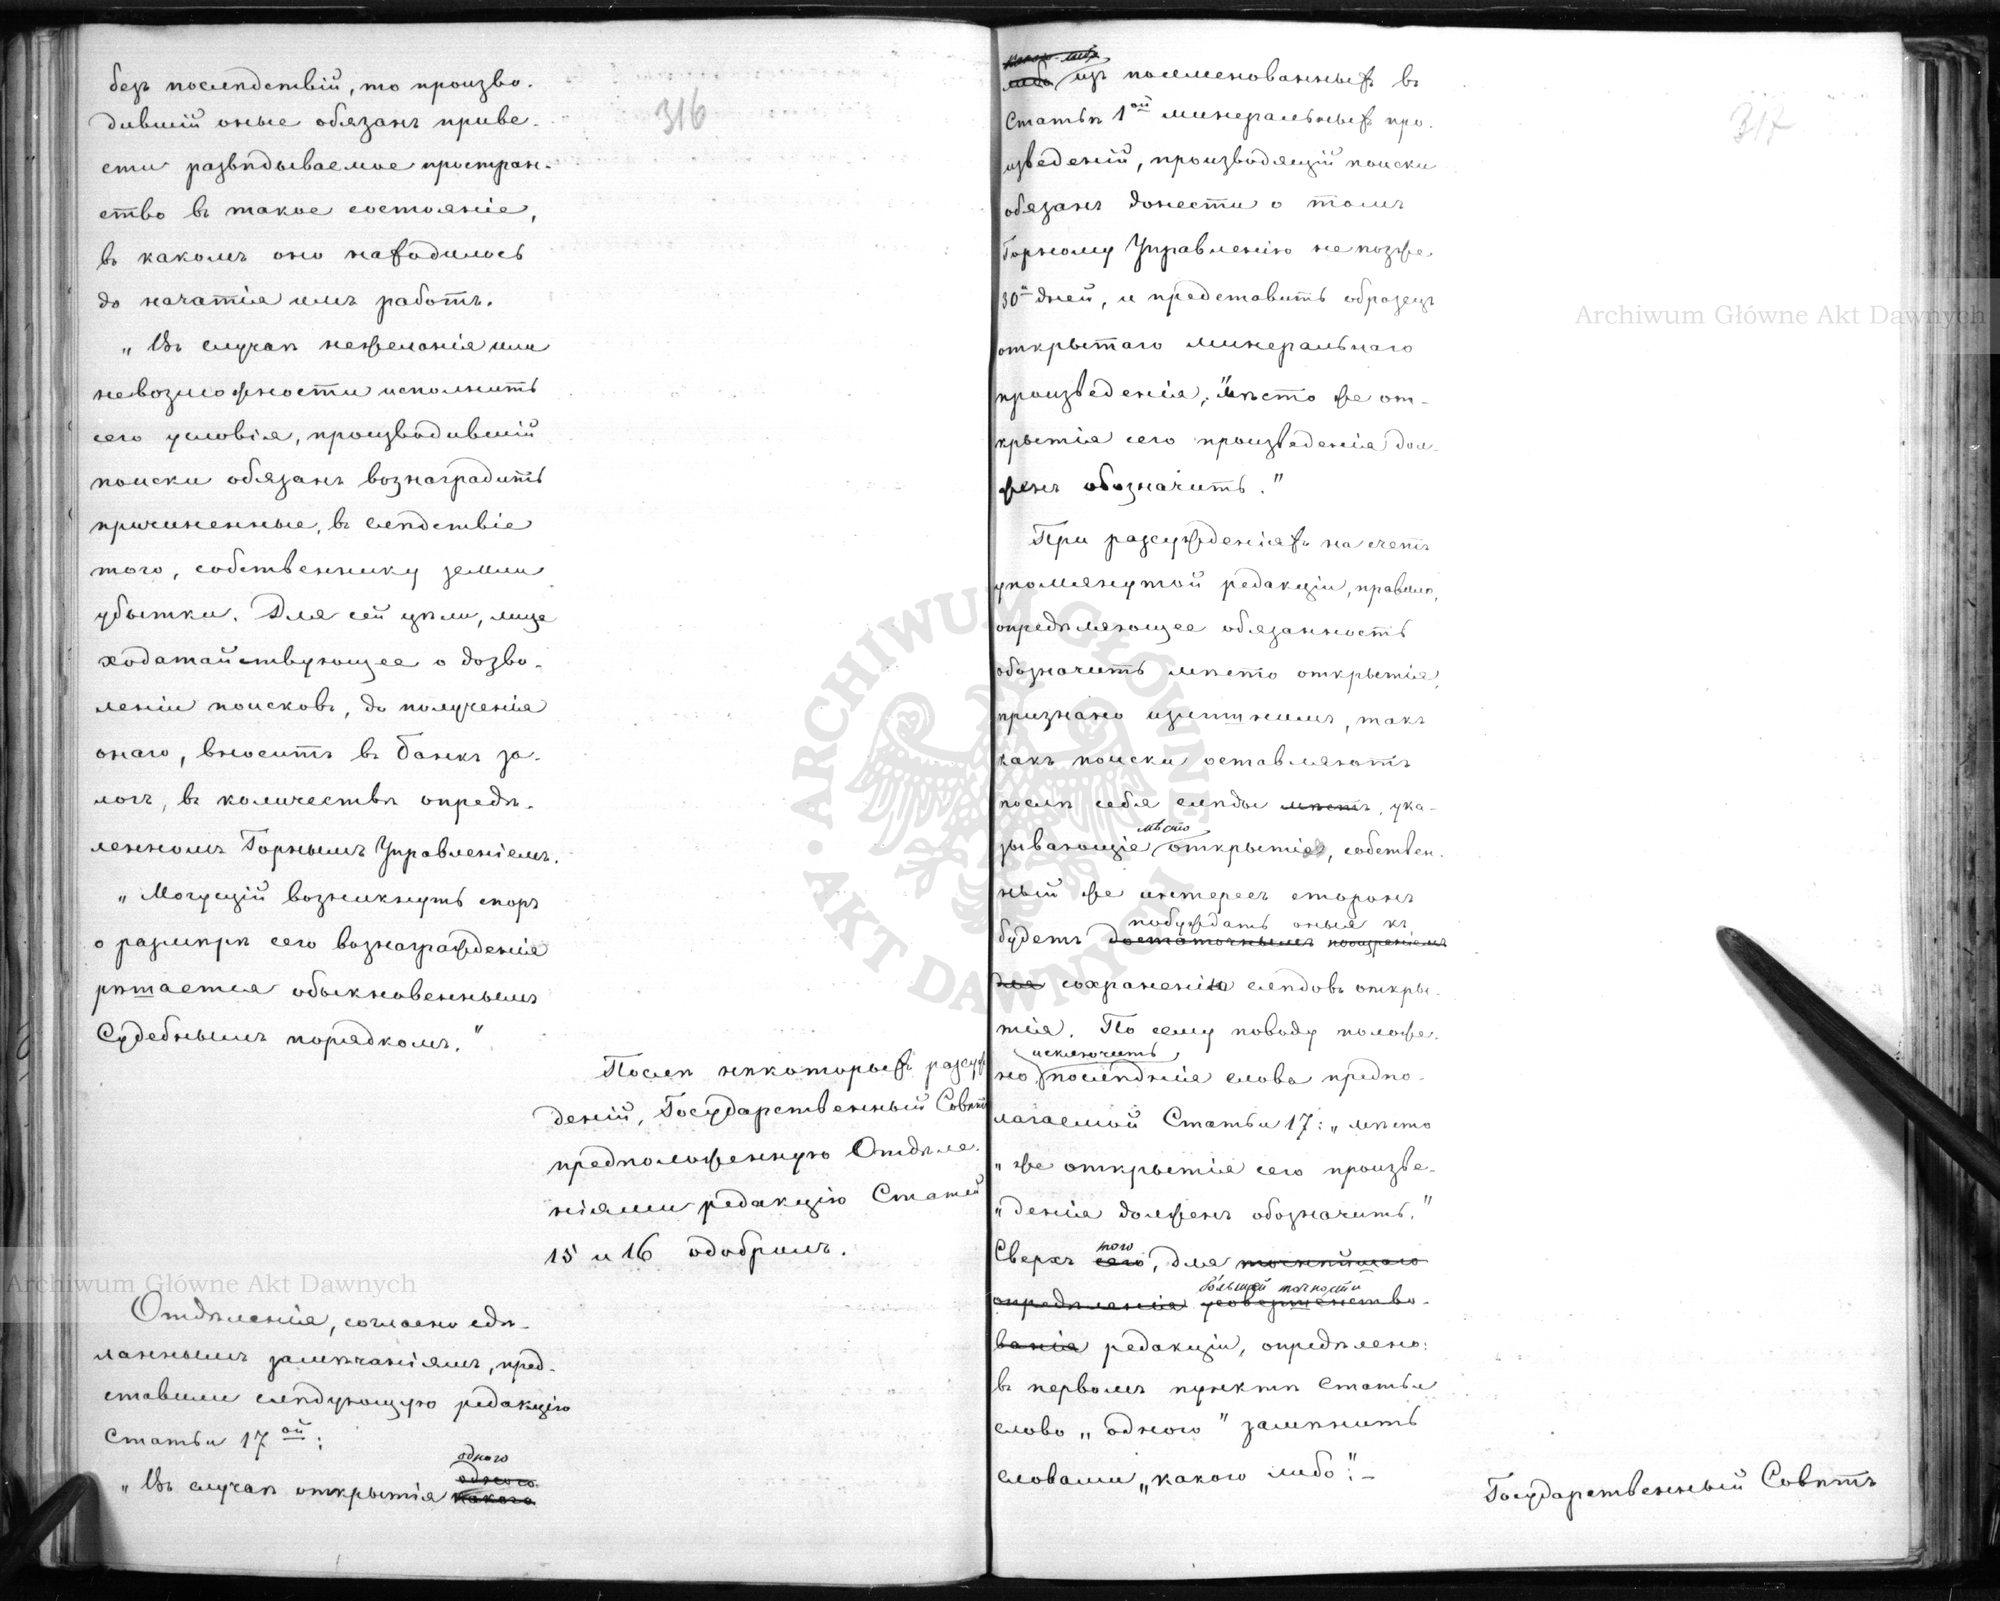 316
безъ послѣдствій, то произво-
дившій оные обязанъ приве-
сти развѣдываемое простран-
ство въ такое состояніе,
въ какомъ оно находилось
до начатія имъ работъ.
„Въ случаѣ нежеланія или
невозможности исполнить
сего условія, производившій
поиски обязанъ вознаградить
причиненные, въ слѣдствіе
того, собственнику земли
убытки. Для сей цѣли, лице
ходатайствующее о дозво-
леніи поисковъ, до полученія
онаго, вноситъ въ Банкъ за-
логъ, въ количествѣ опредѣ-
ленномъ Горнымъ Управленіемъ.
„Могущій возникнуть споръ
о размѣрѣ сего вознагражденія
рѣшается обыкновеннымъ
Судебнымъ порядкомъ.“
Послѣ нѣкоторыхъ разсуж
деній, Государственный Совѣтъ
предположенную Отдѣле-
ніями редакцію Статей
15 и 16 одобрилъ.
Отдѣленія, согласно сдѣ-
ланнымъ замѣчаніямъ, пред-
ставили слѣдующую редакцію
Статьи 17ой:
одного
одного
„Въ случаѣ открытія какого
317
какого либо
либо изъ поименованныхъ въ
Статьѣ 1ой минеральныхъ про-
изведеній, производящій поиски
обязанъ донести о томъ
Горному Управленію не позже
30и дней, и представить образецъ
открытаго минеральнаго
произведенія, мѣсто же от-
крытія сего произведенія дол-
женъ обозначить.“
При разсужденіяхъ на счетъ
упомянутой редакціи, правило,
опредѣляющее обязанность
обозначить мѣсто открытія,
признано излишнимъ, такъ
какъ поиски оставляютъ
послѣ себя слѣды мѣстъ, ука-
мѣсто
зывающіе открытія, собствен-
ный же интересъ сторонъ
побуждать оныя къ
будетъ достаточнымъ поощреніемъ
для сохранению слѣдовъ откры-
тія. По сему поводу положе-
исключить
но, послѣднія слова предпо-
лагаемой Статьи 17: „мѣсто
„же открытія сего произве-
„денія долженъ обозначить.“
того
Сверхъ сего, для точнѣйшаго
большей точности
опредѣленія усовершенство-
ванія редакціи, опредѣлено:
въ первомъ пунктѣ Статьи
слово „одного“ замѣнить
словами „какого либо“:—
Государственный Совѣтъ
Archiwum Główne Akt Dawnych
Archiwum Główne Akt Dawnych
ARCHIWUM GŁÓWNE • AKT DAWNYCH •